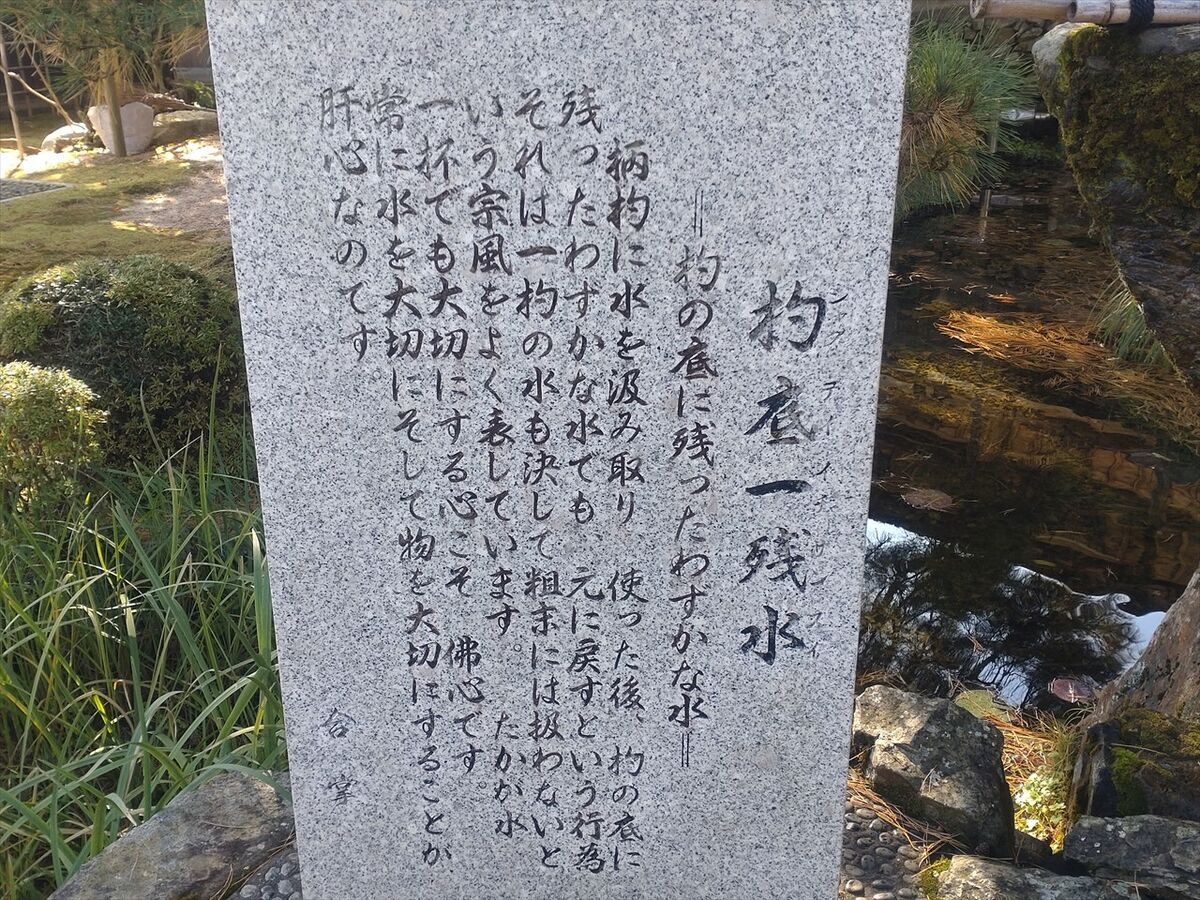 杓底一残水
=杓の底に残ったわずかな水=
柄杓に水を汲み取り 使った後、杓の底に
残ったわずかな水でも、元に戻すという行為
それは一杓の水も決して粗末には扱わないと
いう宗風をよく表しています。 たかが水
一杯でも大切にする心こそ 佛心です。
常に水を大切にそして物を大切にすることが
肝心なのです。
合掌